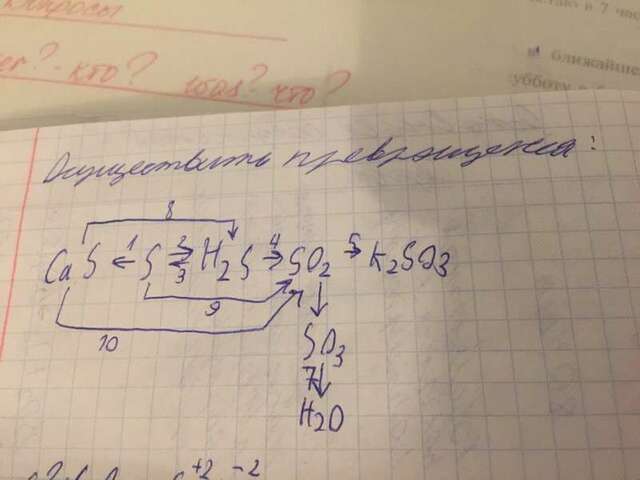 вопросы
кто? что?
ближайше
субботу в
Осуществить превращения:
8
CaS ←1 S ⇄ 2 3 H2S →4 SO2 →5 K2SO3
9
10
SO3
7
H2O
+2 -2